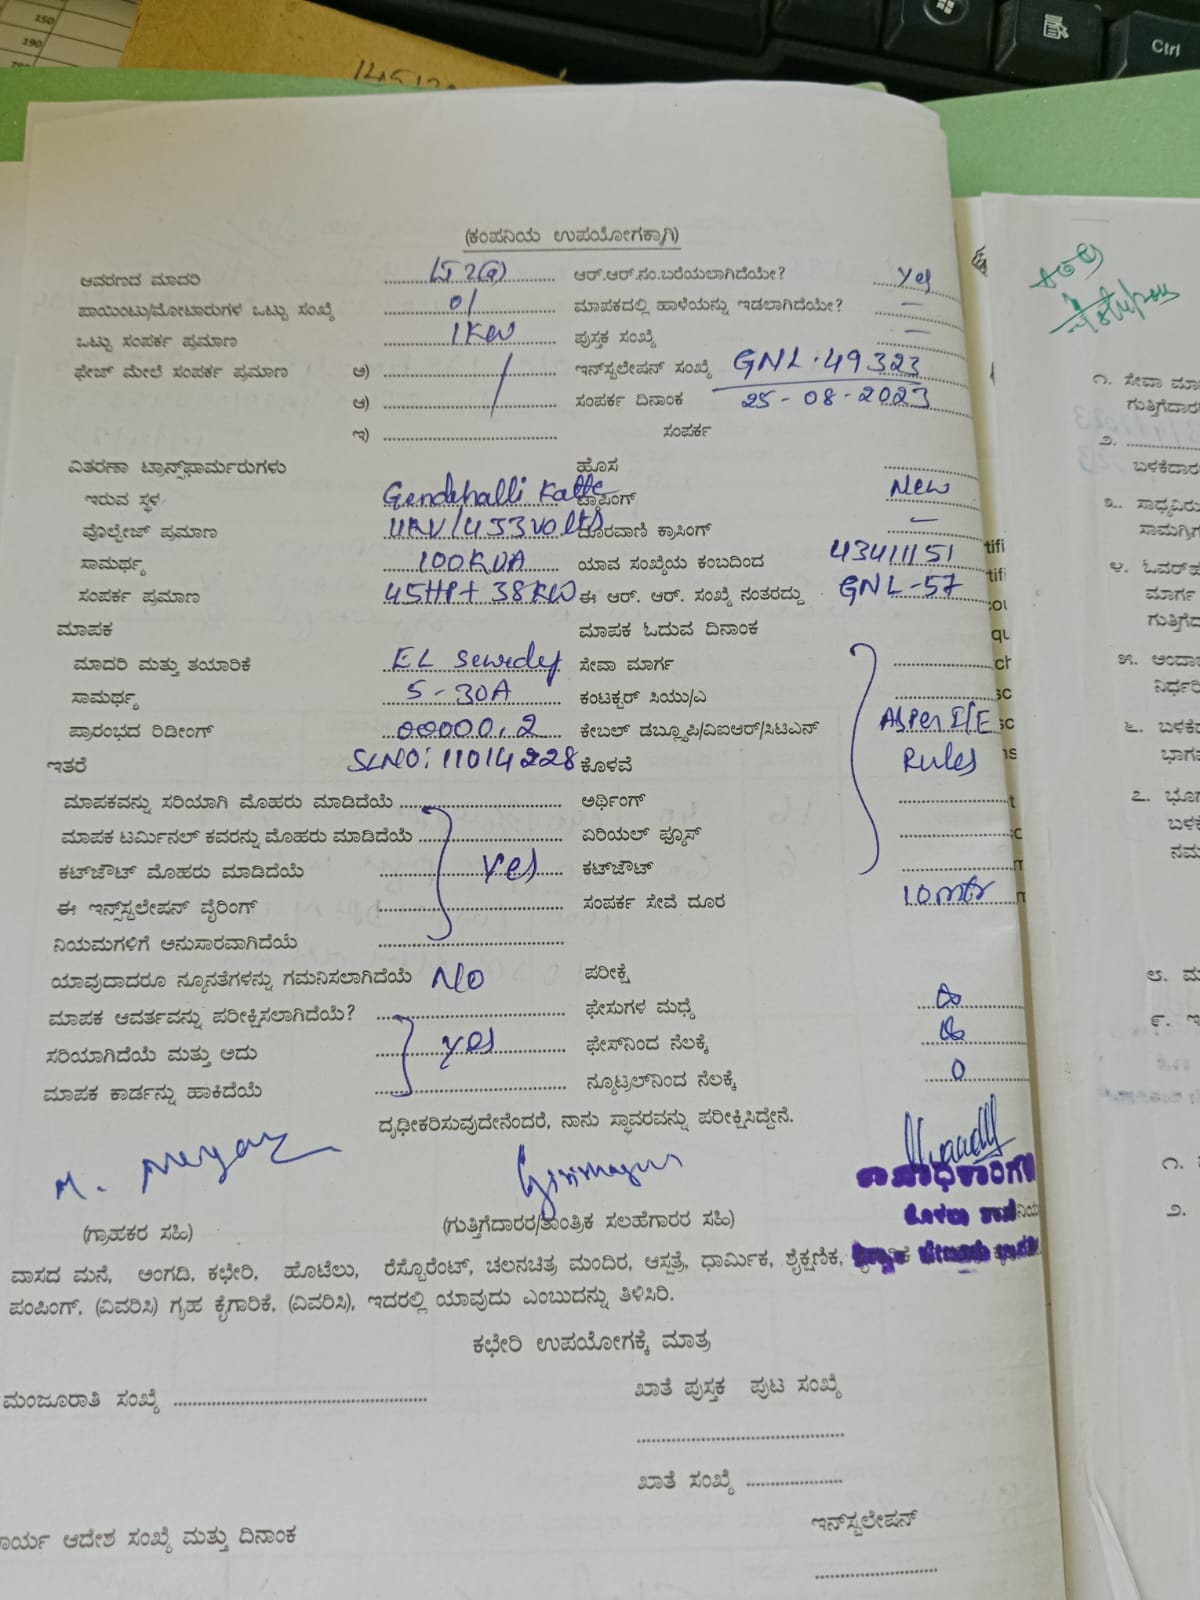 150
190
Ctrl
(ಕಂಪನಿಯ ಉಪಯೋಗಕ್ಕಾಗಿ)
ಆವರಣದ ಮಾದರಿ ಆರ್.ಆರ್.ನಂ.ಬರೆಯಲಾಗಿದೆಯೇ? Yes
ಪಾಯಿಂಟು/ಮೋಟಾರುಗಳ ಒಟ್ಟು ಸಂಖ್ಯೆ 01 ಮಾಪಕದಲ್ಲಿ ಹಾಳೆಯನ್ನು ಇಡಲಾಗಿದೆಯೇ? —
ಒಟ್ಟು ಸಂಪರ್ಕ ಪ್ರಮಾಣ 1KW ಪುಸ್ತಕ ಸಂಖ್ಯೆ —
ಫೇಜ್ ಮೇಲೆ ಸಂಪರ್ಕ ಪ್ರಮಾಣ ಅ) ಇನ್‌ಸ್ಟಲೇಷನ್ ಸಂಖ್ಯೆ GNL.49323
ಆ) ಸಂಪರ್ಕ ದಿನಾಂಕ 25-08-2023
ಇ) ಸಂಪರ್ಕ
ವಿತರಣಾ ಟ್ರಾನ್ಸ್‌ಫಾರ್ಮರುಗಳು ಹೊಸ
ಇರುವ ಸ್ಥಳ Gendehalli Katte ಟ್ಯಾಪಿಂಗ್ New
ವೊಲ್ಟೇಜ್ ಪ್ರಮಾಣ 11KV/433volts ದೂರವಾಣಿ ಕ್ರಾಸಿಂಗ್ —
ಸಾಮರ್ಥ್ಯ 100KVA ಯಾವ ಸಂಖ್ಯೆಯ ಕಂಬದಿಂದ 43411151
ಸಂಪರ್ಕ ಪ್ರಮಾಣ 45HP+38KW ಈ ಆರ್. ಆರ್. ಸಂಖ್ಯೆ ನಂತರದ್ದು GNL-57
ಮಾಪಕ ಮಾಪಕ ಓದುವ ದಿನಾಂಕ
ಮಾದರಿ ಮತ್ತು ತಯಾರಿಕೆ EL ಸೇವಾ ಮಾರ್ಗ
ಸಾಮರ್ಥ್ಯ 5-30A ಕಂಟಕ್ಟರ್ ಸಿಯು/ಎ
ಪ್ರಾರಂಭದ ರಿಡೀಂಗ್ 00000.2 ಕೇಬಲ್ ಡಬ್ಲೂಪಿ/ವಿಐಆರ್/ಸಿಟಿಎಸ್ As per I/E
ಇತರೆ SLNO: 11014228 ಕೊಳವೆ Rules
ಮಾಪಕವನ್ನು ಸರಿಯಾಗಿ ಮೊಹರು ಮಾಡಿದೆಯೆ ಅರ್ಥಿಂಗ್
ಮಾಪಕ ಟರ್ಮಿನಲ್ ಕವರನ್ನು ಮೊಹರು ಮಾಡಿದೆಯೆ ಏರಿಯಲ್ ಫ್ಯೂಸ್
ಕಟ್‌ಔಟ್ ಮೊಹರು ಮಾಡಿದೆಯೆ Yes ಕಟ್‌ಔಟ್
ಈ ಇನ್ಸ್‌ಸ್ಟಲೇಷನ್ ವೈರಿಂಗ್ ಸಂಪರ್ಕ ಸೇವೆ ದೂರ 10mtr
ನಿಯಮಗಳಿಗೆ ಅನುಸಾರವಾಗಿದೆಯೆ
ಯಾವುದಾದರೂ ನ್ಯೂನತೆಗಳನ್ನು ಗಮನಿಸಲಾಗಿದೆಯೆ No ಪರೀಕ್ಷೆ
ಮಾಪಕ ಆವರ್ತವನ್ನು ಪರೀಕ್ಷಿಸಲಾಗಿದೆಯೆ? ಫೇಸುಗಳ ಮಧ್ಯೆ
ಸರಿಯಾಗಿದೆಯೆ ಮತ್ತು ಅದು yes ಫೇಸ್‌ನಿಂದ ನೆಲಕ್ಕೆ
ಮಾಪಕ ಕಾರ್ಡನ್ನು ಹಾಕಿದೆಯೆ ನ್ಯೂಟ್ರಲ್‌ನಿಂದ ನೆಲಕ್ಕೆ 0
ದೃಢೀಕರಿಸುವುದೇನೆಂದರೆ, ನಾನು ಸ್ಥಾವರವನ್ನು ಪರೀಕ್ಷಿಸಿದ್ದೇನೆ.
(ಗ್ರಾಹಕರ ಸಹಿ) (ಗುತ್ತಿಗೆದಾರರ/ತಾಂತ್ರಿಕ ಸಲಹೆಗಾರರ ಸಹಿ)
ವಾಸದ ಮನೆ, ಅಂಗಡಿ, ಕಛೇರಿ, ಹೊಟೆಲು, ರೆಸ್ಟೊರೆಂಟ್, ಚಲನಚಿತ್ರ ಮಂದಿರ, ಆಸ್ಪತ್ರೆ, ಧಾರ್ಮಿಕ, ಶೈಕ್ಷಣಿಕ,
ಪಂಪಿಂಗ್, (ವಿವರಿಸಿ) ಗೃಹ ಕೈಗಾರಿಕೆ, (ವಿವರಿಸಿ), ಇದರಲ್ಲಿ ಯಾವುದು ಎಂಬುದನ್ನು ತಿಳಿಸಿರಿ.
ಕಛೇರಿ ಉಪಯೋಗಕ್ಕೆ ಮಾತ್ರ
ಮಂಜೂರಾತಿ ಸಂಖ್ಯೆ ಖಾತೆ ಪುಸ್ತಕ ಪುಟ ಸಂಖ್ಯೆ
ಖಾತೆ ಸಂಖ್ಯೆ
ಇನ್‌ಸ್ಟಲೇಷನ್
ಆದೇಶ ಸಂಖ್ಯೆ ಮತ್ತು ದಿನಾಂಕ